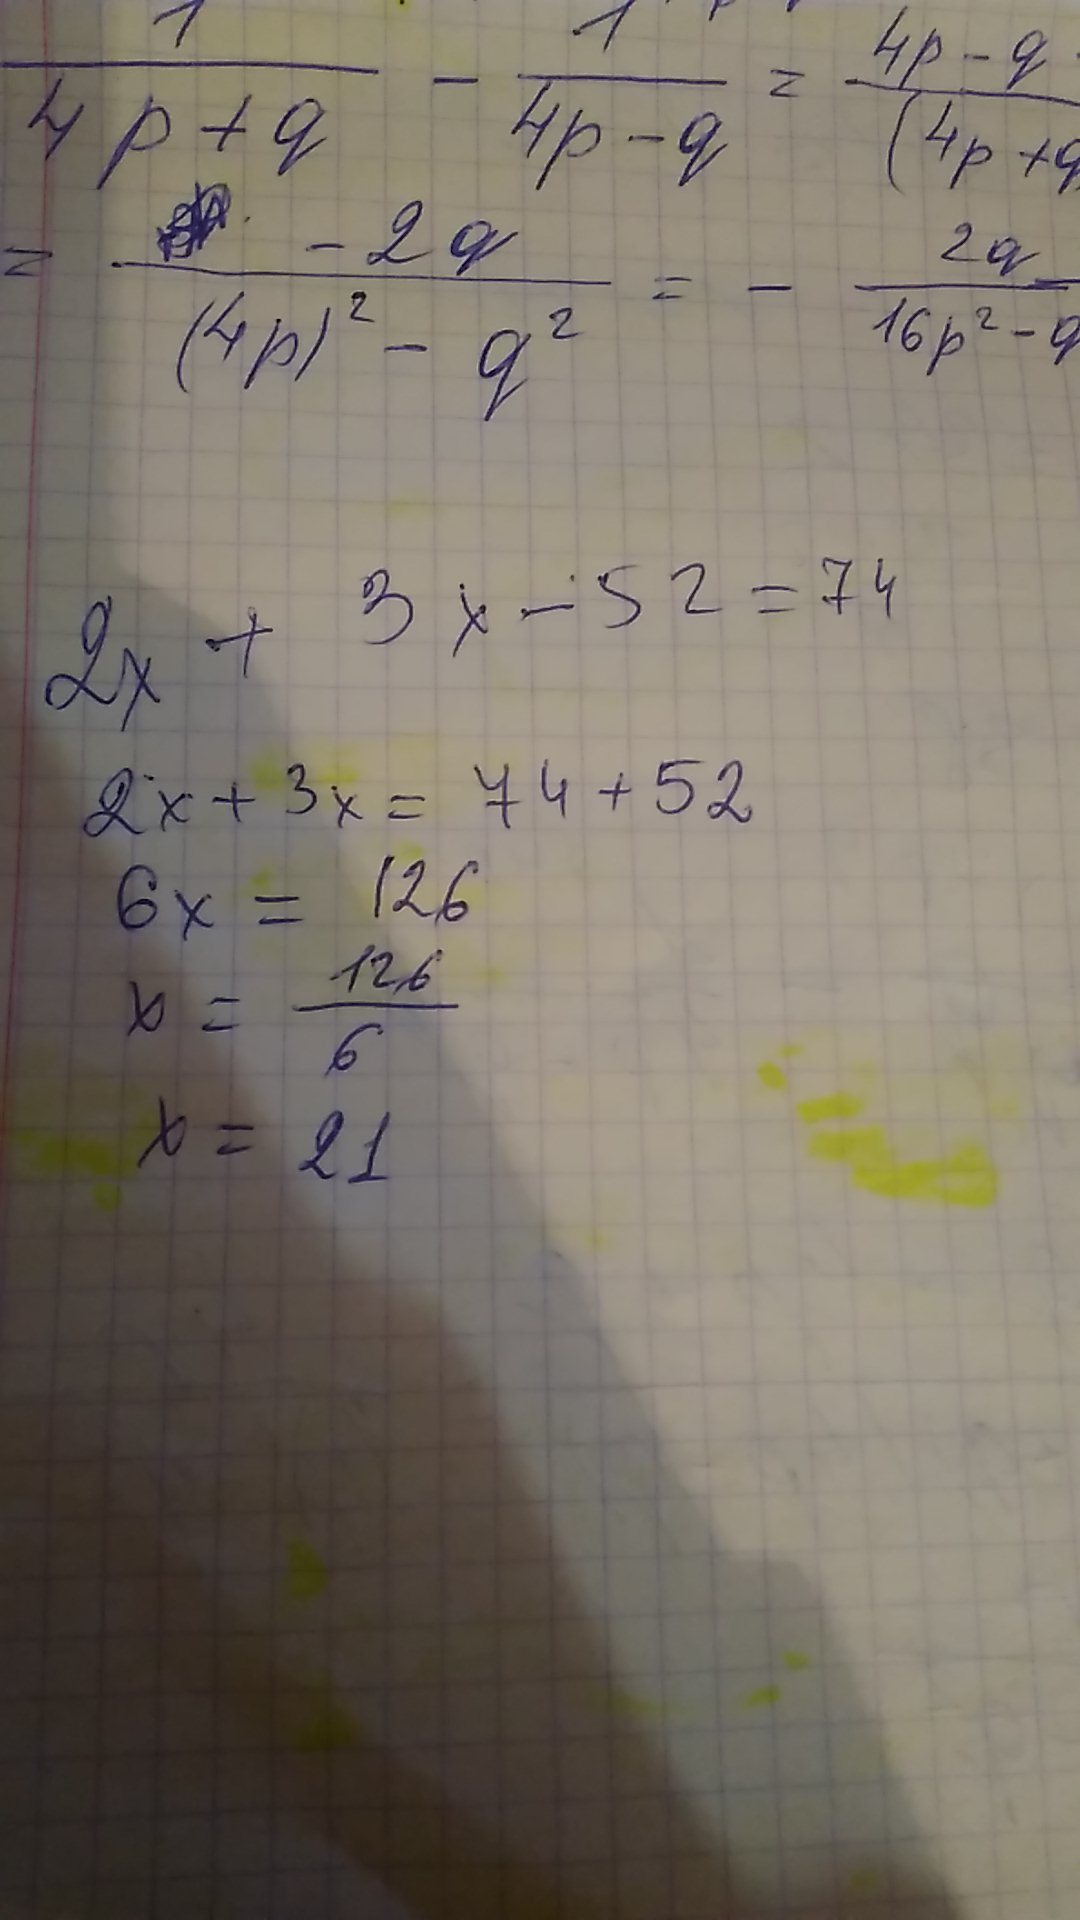 1/(4p+q) - 1/(4p-q) = (4p-q
(4p+q
= -2q/((4p)² - q²) = - 2q/(16p² - q
2x + 3x - 52 = 74
2x + 3x = 74 + 52
6x = 126
x = 126/6
x = 21